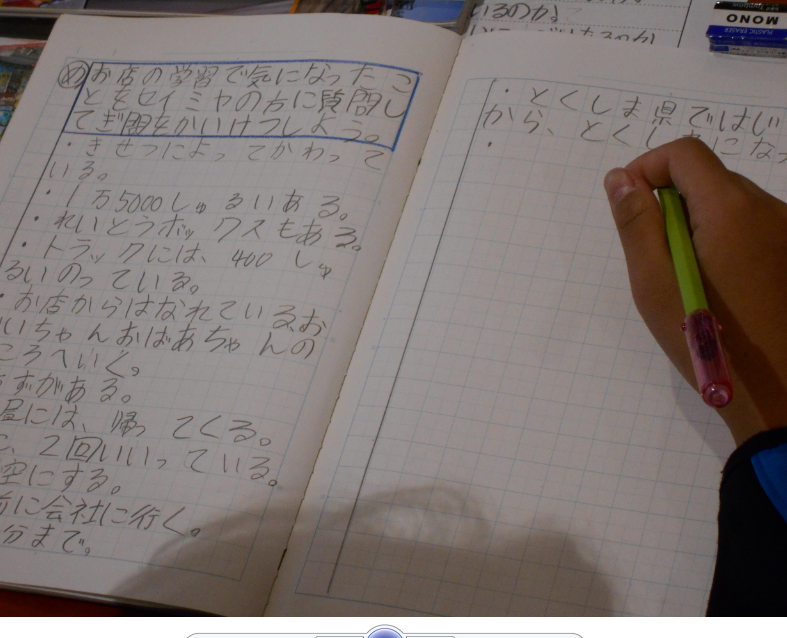 いるのか。
MONO
PLASTIC ERASER
め お店の学習で気になったこ
とをセイミヤの方に質問し
てぎ問をかいけつしよう。
・きせつによってかわって
いる。
・1万5000しゅるいある。
・れいとうボックスもある。
・トラックには、400しゅ
るいのっている。
・お店からはなれているお
いちゃんおばあちゃんの
ころへいく。
ずがある。
昼には、帰ってくる。
2回いいっている。
空にする。
前に会社に行く。
分まで。
・とくしま県ではじ
から、とくしまになっ
・